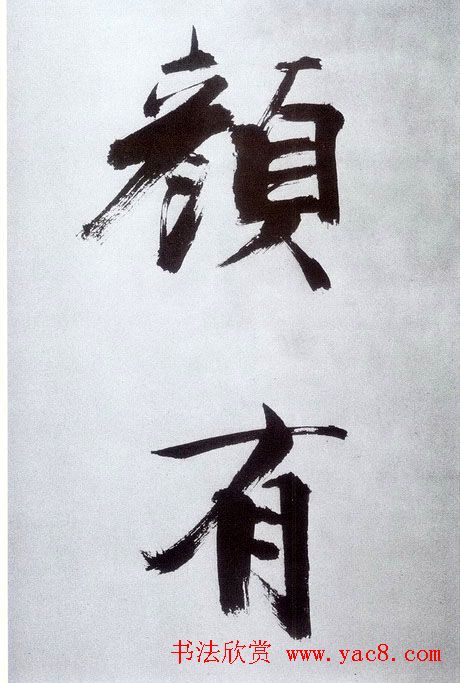 顔
有
书法欣赏 www.yac8.com